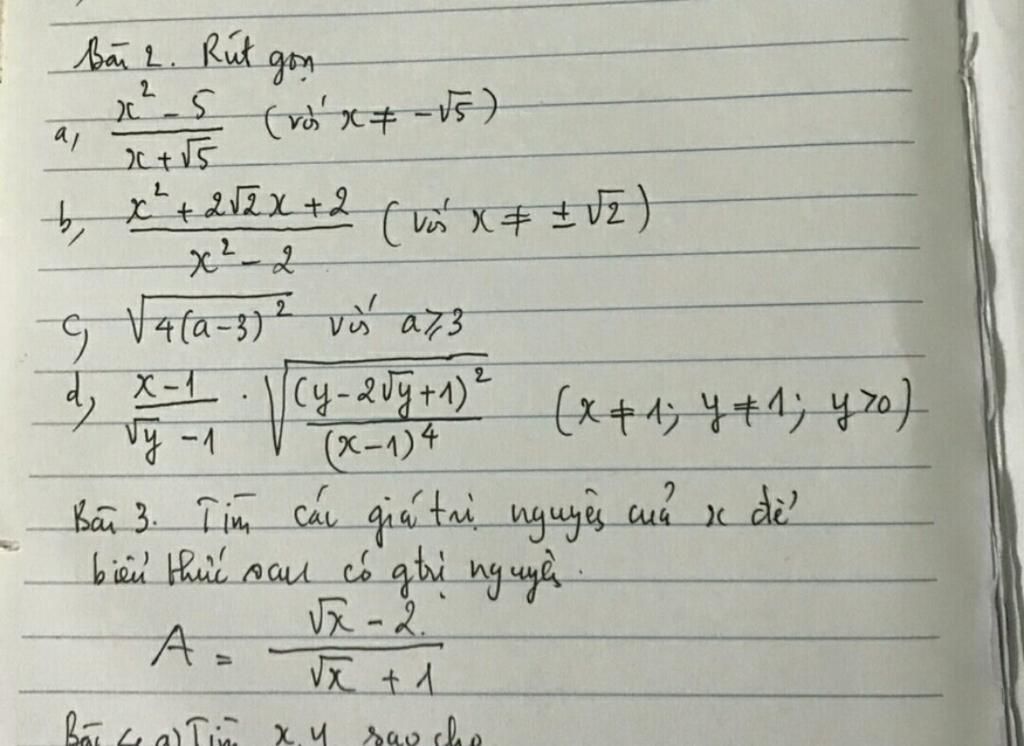 Bài 2. Rút gọn
a, \frac{x^2 - 5}{x + \sqrt{5}} (với x ≠ -√5)
b, \frac{x^2 + 2\sqrt{2}x + 2}{x^2 - 2} (với x ≠ ±√2)
c, \sqrt{4(a-3)^2} với a ⩾ 3
d, \frac{x-1}{\sqrt{y} - 1} . \sqrt{\frac{(y - 2\sqrt{y} + 1)^2}{(x-1)^4}} (x ≠ 1; y ≠ 1; y > 0)
Bài 3. Tìm các giá trị nguyên của x để
biểu thức sau có gtrị nguyên.
A = \frac{\sqrt{x} - 2}{\sqrt{x} + 1}
Bài 4 a) Tìm x, y sao cho